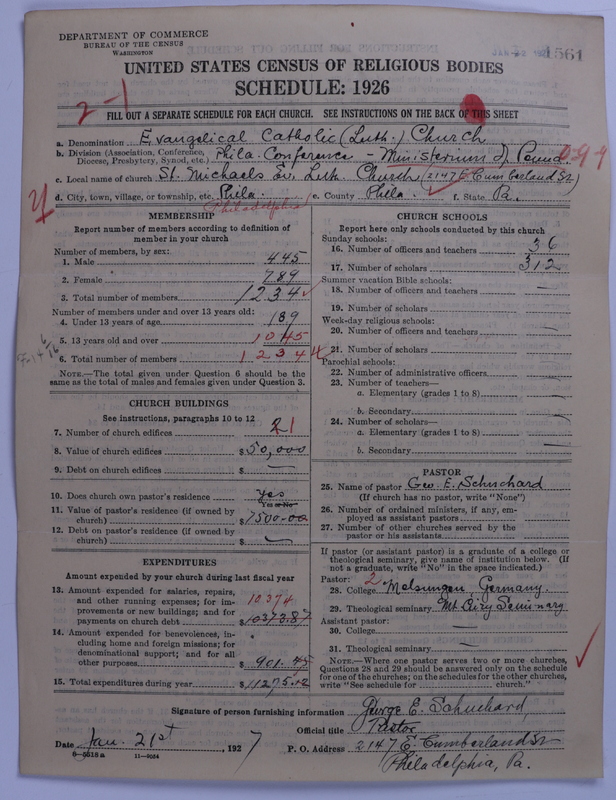 DEPARTMENT OF COMMERCE
BUREAU OF THE CENSUS
WASHINGTON
1561
UNITED STATES CENSUS OF RELIGIOUS BODIES
SCHEDULE: 1926
2-1
FILL OUT A SEPARATE SCHEDULE FOR EACH CHURCH. SEE INSTRUCTIONS ON THE BACK OF THIS SHEET
a. Denomination Evangelical Catholic (Luth.) Church
b. Division (Association, Conference, Diocese, Presbytery, Synod, etc.) Phila. Conference - Ministerium of Penna
c. Local name of church St. Michaels Ev. Luth. Church (2147 E. Cumberland St.)
d. City, town, village, or township, etc. Phila. e. County Phila. f. State Pa.
Philadelphia
MEMBERSHIP
Report number of members according to definition of
member in your church
Number of members, by sex:
1. Male 445
2. Female 789
3. Total number of members 1234
Number of members under and over 13 years old:
4. Under 13 years of age 189
5. 13 years old and over 1045
6. Total number of members 1234
NOTE.—The total given under Question 6 should be the
same as the total of males and females given under Question 3.
CHURCH BUILDINGS
See instructions, paragraphs 10 to 12
7. Number of church edifices 21
8. Value of church edifices $50,000
9. Debt on church edifices $ —
10. Does church own pastor's residence yes
Yes or No
11. Value of pastor's residence (if owned by
church) $7500.00
12. Debt on pastor's residence (if owned by
church) $ —
EXPENDITURES
Amount expended by your church during last fiscal year
13. Amount expended for salaries, repairs,
and other running expenses; for im-
provements or new buildings; and for
payments on church debt 10,374 $10373.87
14. Amount expended for benevolences, in-
cluding home and foreign missions; for
denominational support; and for all
other purposes $901.45
15. Total expenditures during year $11275.32
CHURCH SCHOOLS
Report here only schools conducted by this church
Sunday schools:
16. Number of officers and teachers 36
17. Number of scholars 312
Summer vacation Bible schools:
18. Number of officers and teachers —
19. Number of scholars
Week-day religious schools:
20. Number of officers and teachers —
21. Number of scholars
Parochial schools:
22. Number of administrative officers
23. Number of teachers—
a. Elementary (grades 1 to 8)
b. Secondary
24. Number of scholars—
a. Elementary (grades 1 to 8)
b. Secondary
PASTOR
25. Name of pastor Geo. E. Schuchard
(If church has no pastor, write "None")
26. Number of ordained ministers, if any, em-
ployed as assistant pastors
27. Number of other churches served by the
pastor or his assistants
If pastor (or assistant pastor) is a graduate of a college or
theological seminary, give name of institution below. (If
not a graduate, write "No" in the space indicated.)
Pastor: 2
28. College Melsungen, Germany.
29. Theological seminary Mt. Airy Seminary
Assistant pastor:
30. College —
31. Theological seminary —
NOTE.—Where one pastor serves two or more churches,
Questions 28 and 29 should be answered only on the schedule
for one of the churches; on the schedules for the other churches,
write "See schedule for church."
Signature of person furnishing information George E. Schuchard
Official title Pastor
Date Jan. 21st, 1927 P. O. Address 2147 E. Cumberland St
Philadelphia, Pa.
11—9084